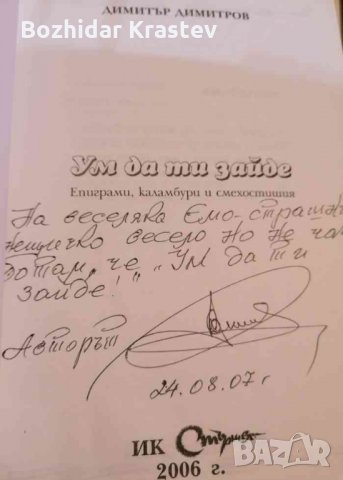 Bozhidar Krastev
ДИМИТЪР ДИМИТРОВ
Ум да ти зайде
Епиграми, каламбури и смехостишия
На веселяка Емо - страшни
весело но не
че "Ум да ти
зайде!"
Авторът
24.08.07 г
ИК
2006 г.
BAZAR